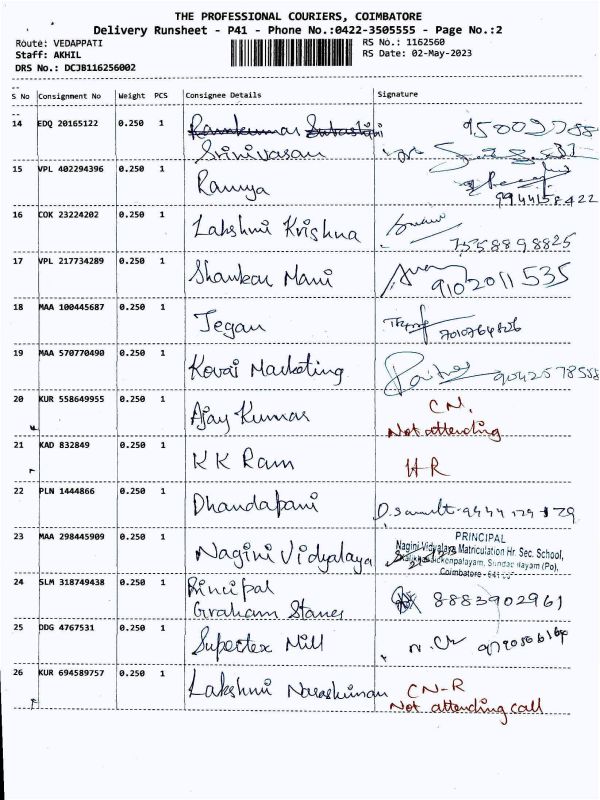 THE PROFESSIONAL COURIERS, COIMBATORE
Delivery Runsheet - P41 - Phone No.:0422-3505555 - Page No.:2
Route: VEDAPPATI
RS No.: 1162560
Staff: AKHIL
RS Date: 02-May-2023
DRS No.: DCJB116256002
S No Consignment No Weight PCS Consignee Details Signature
14 EDQ 20165122 0.250 1
Srinivasan
15 VPL 402294396 0.250 1 Ramya
9944158422
16 COK 23224202 0.250 1 Lakshmi Krishna
7558898825
17 VPL 217734289 0.250 1 Shankar Mani 9102011535
18 MAA 100445687 0.250 1 Tegan 7010764826
19 MAA 570770490 0.250 1 Kovai Marketing 9042578558
20 KUR 558649955 0.250 1 Ajay Kumar CN.
Not attending
21 KAD 832849 0.250 1 KK Ram HR
22 PLN 1444866 0.250 1 Dhandapani
23 MAA 298445909 0.250 1 Nagini Vidyalaya PRINCIPAL
Nagini Vidyalaya Matriculation Hr. Sec. School,
Coimbatore
24 SLM 318749438 0.250 1 Principal
Graham Stanes 8883902961
25 DDG 4767531 0.250 1 Supertex Mill
26 KUR 694589757 0.250 1 Lakshmi Narashiman CN-R
Not attending call